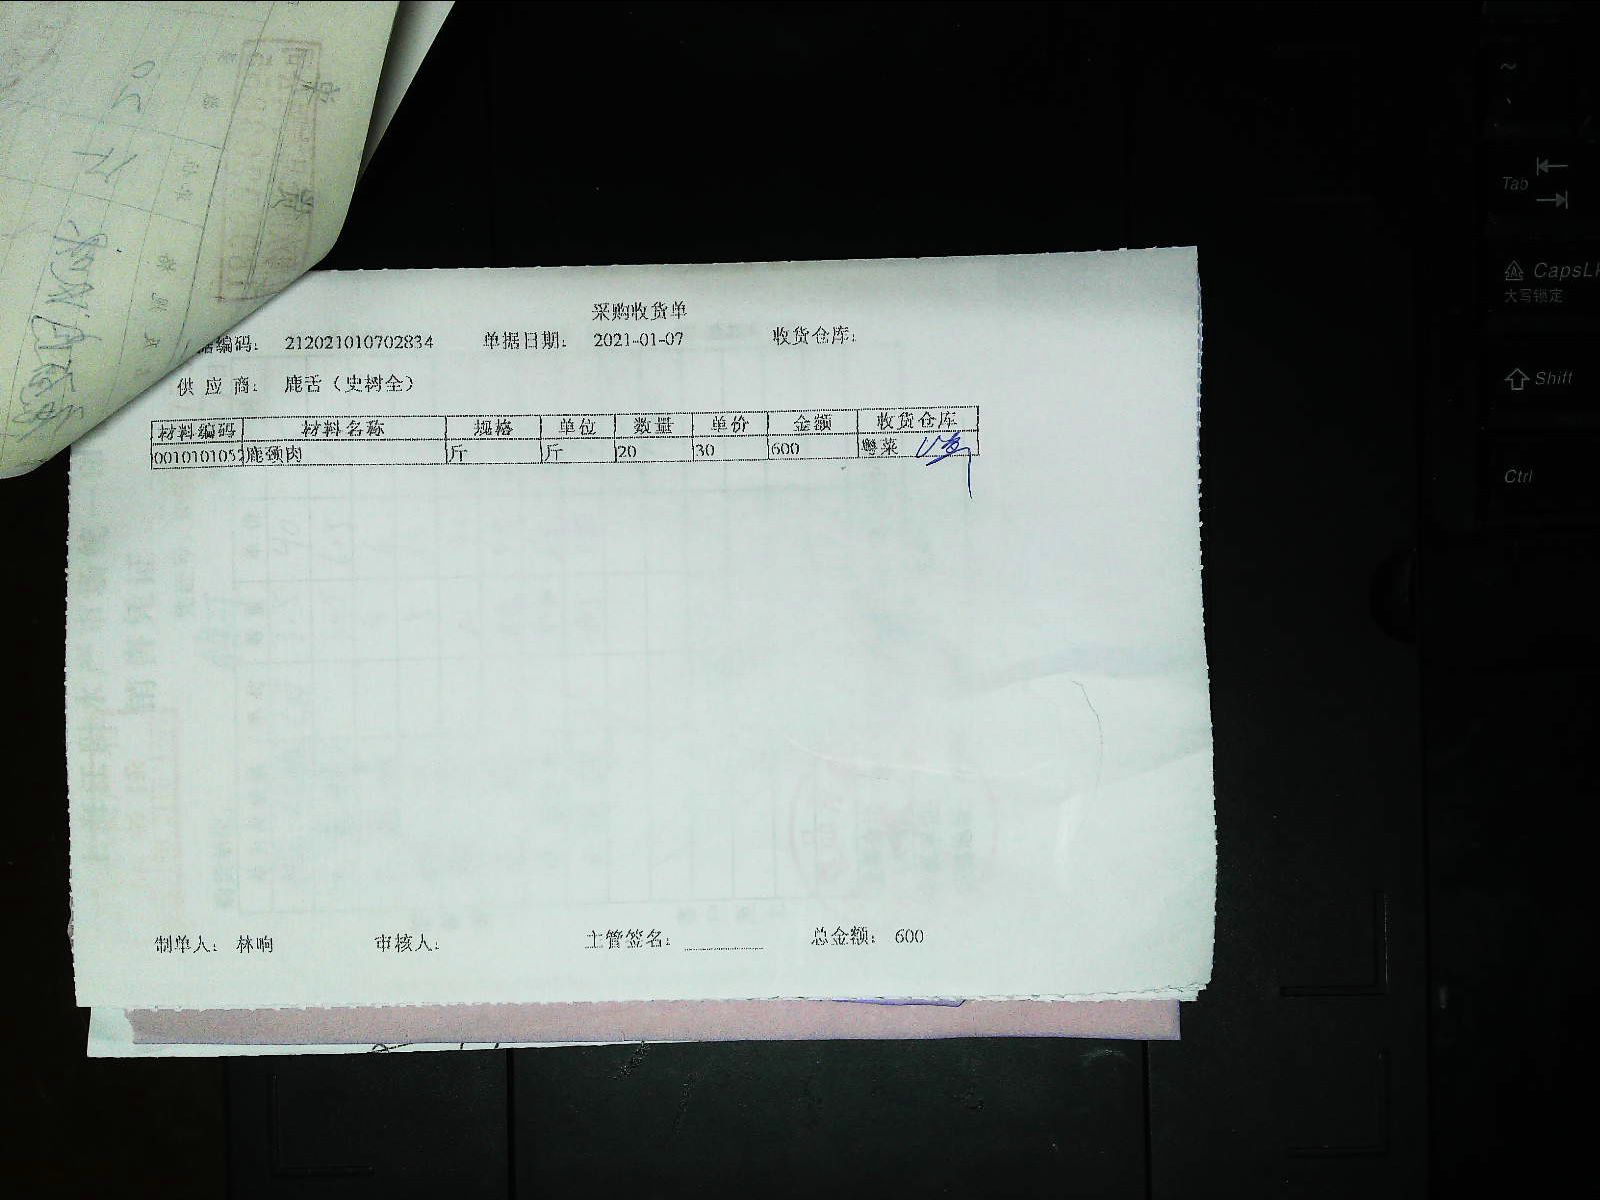 采购收货单
据编码： 212021010702834 单据日期： 2021-01-07 收货仓库：
供应商： 鹿舌（史树全）
材料编码 材料名称 规格 单位 数量 单价 金额 收货仓库
0010101052 鹿颈肉 斤 斤 20 30 600 粤菜
制单人： 林响 审核人： 主管签名： 总金额： 600
~
Tab
CapsLk
大写锁定
Shift
Ctrl